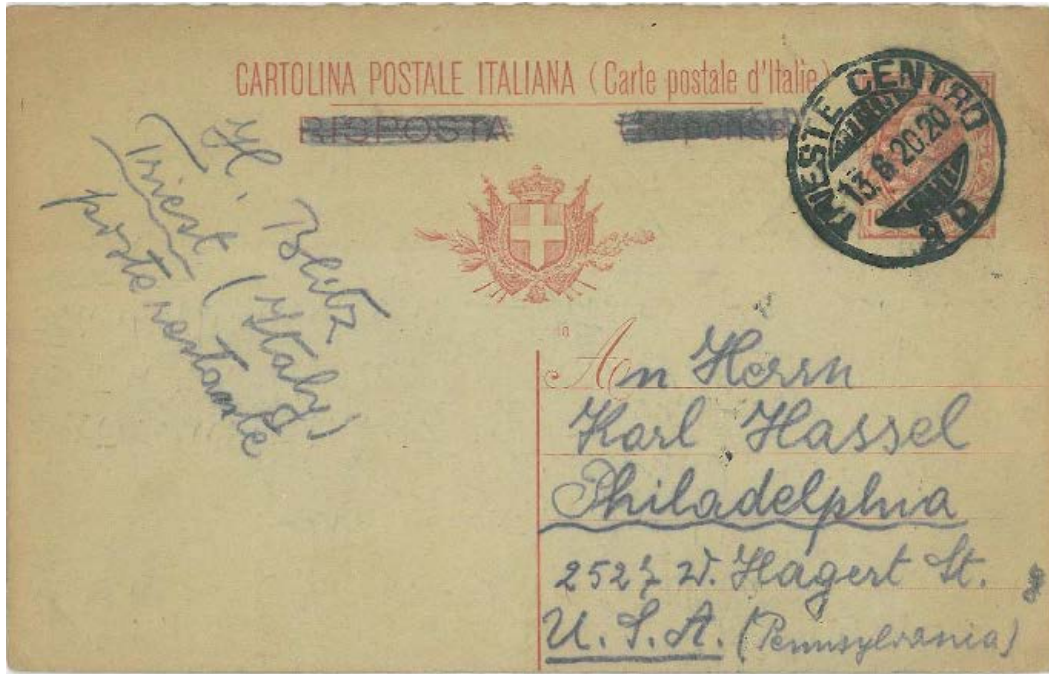 CARTOLINA POSTALE ITALIANA (Carte postale d'Italie)
RISPOSTA
TRIESTE CENTRO
13.6.20.20
H. Blitz
Triest (Italy)
poste restante
An Herrn
Karl Hassel
Philadelphia
2527 W. Hagert St.
U.S.A. (Pennsylvania)